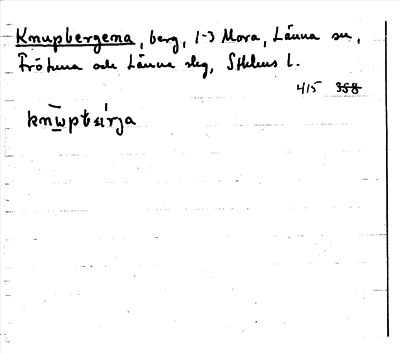 Knupbergena, berg, 1-3 Mora, Länna sn,
Frötuna och Länna slg, Sthlms l.
415 358